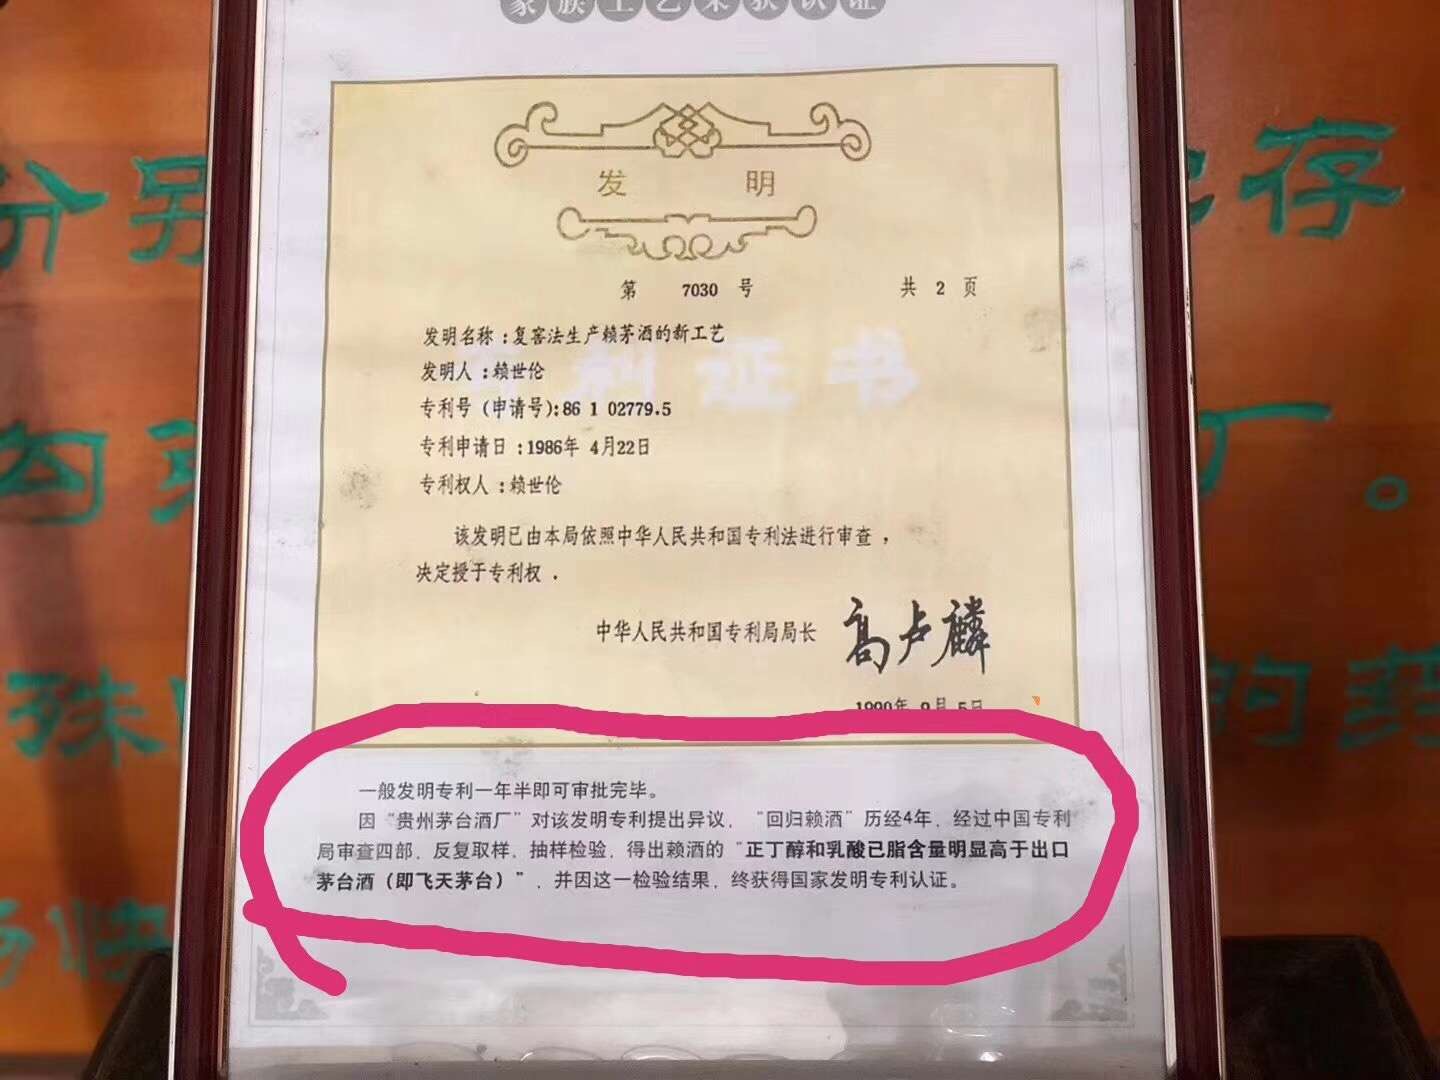 家族工艺荣获认证
发 明
第 7030 号 共 2 页
发明名称：复窖法生产赖茅酒的新工艺
发明人：赖世伦
专利证书
专利号（申请号）：86 1 02779.5
专利申请日：1986年 4月22日
专利权人：赖世伦
该发明已由本局依照中华人民共和国专利法进行审查，
决定授于专利权．
中华人民共和国专利局局长 高卢麟
1990年 9月 5日
一般发明专利一年半即可审批完毕。
因“贵州茅台酒厂”对该发明专利提出异议，“回归赖酒”历经4年，经过中国专利
局审查四部，反复取样，抽样检验，得出赖酒的“正丁醇和乳酸已脂含量明显高于出口
茅台酒（即飞天茅台）”，并因这一检验结果，终获得国家发明专利认证。
分别
存
勾
丁。
殊
的药